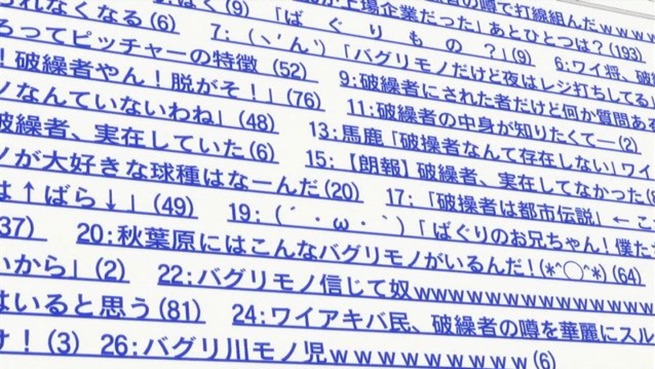 者の噂で打線組んだｗｗｗｗ
上場企業だった」あとひとつは？(193)
れなくなる(6)　7:(ヽ´ん`)「バグリモノだけど夜はレジ打ちしてる」
(9)　「ばぐりもの？」(9)　6:ワイ将、破繰
ろってピッチャーの特徴 (52)　9:破繰者にされた者だけど何か質問ある
！破繰者やん！脱がそ！」(76)　11:破繰者の中身が知りたくて―(2)
ノなんていないわね」(48)　13:馬鹿「破操者なんて存在しない」ワイ
破繰者、実在していた(6)　15:【朗報】破繰者、実在してなかった
ノが大好きな球種はなーんだ(20)　17:「破操者は都市伝説」←こ
は↑ばら↓」(49)　19:(´・ω・`)「ばぐりのお兄ちゃん！僕た
37)　20:秋葉原にはこんなバグリモノがいるんだ！(*^◯^*)(64)
いから」(2)　22:バグリモノ信じて奴wwwwwwwwwwwwwww
はいると思う(81)　24:ワイアキバ民、破繰者の噂を華麗にスル
け！(3)　26:バグリ川モノ児ｗｗｗｗｗｗｗｗｗ(6)